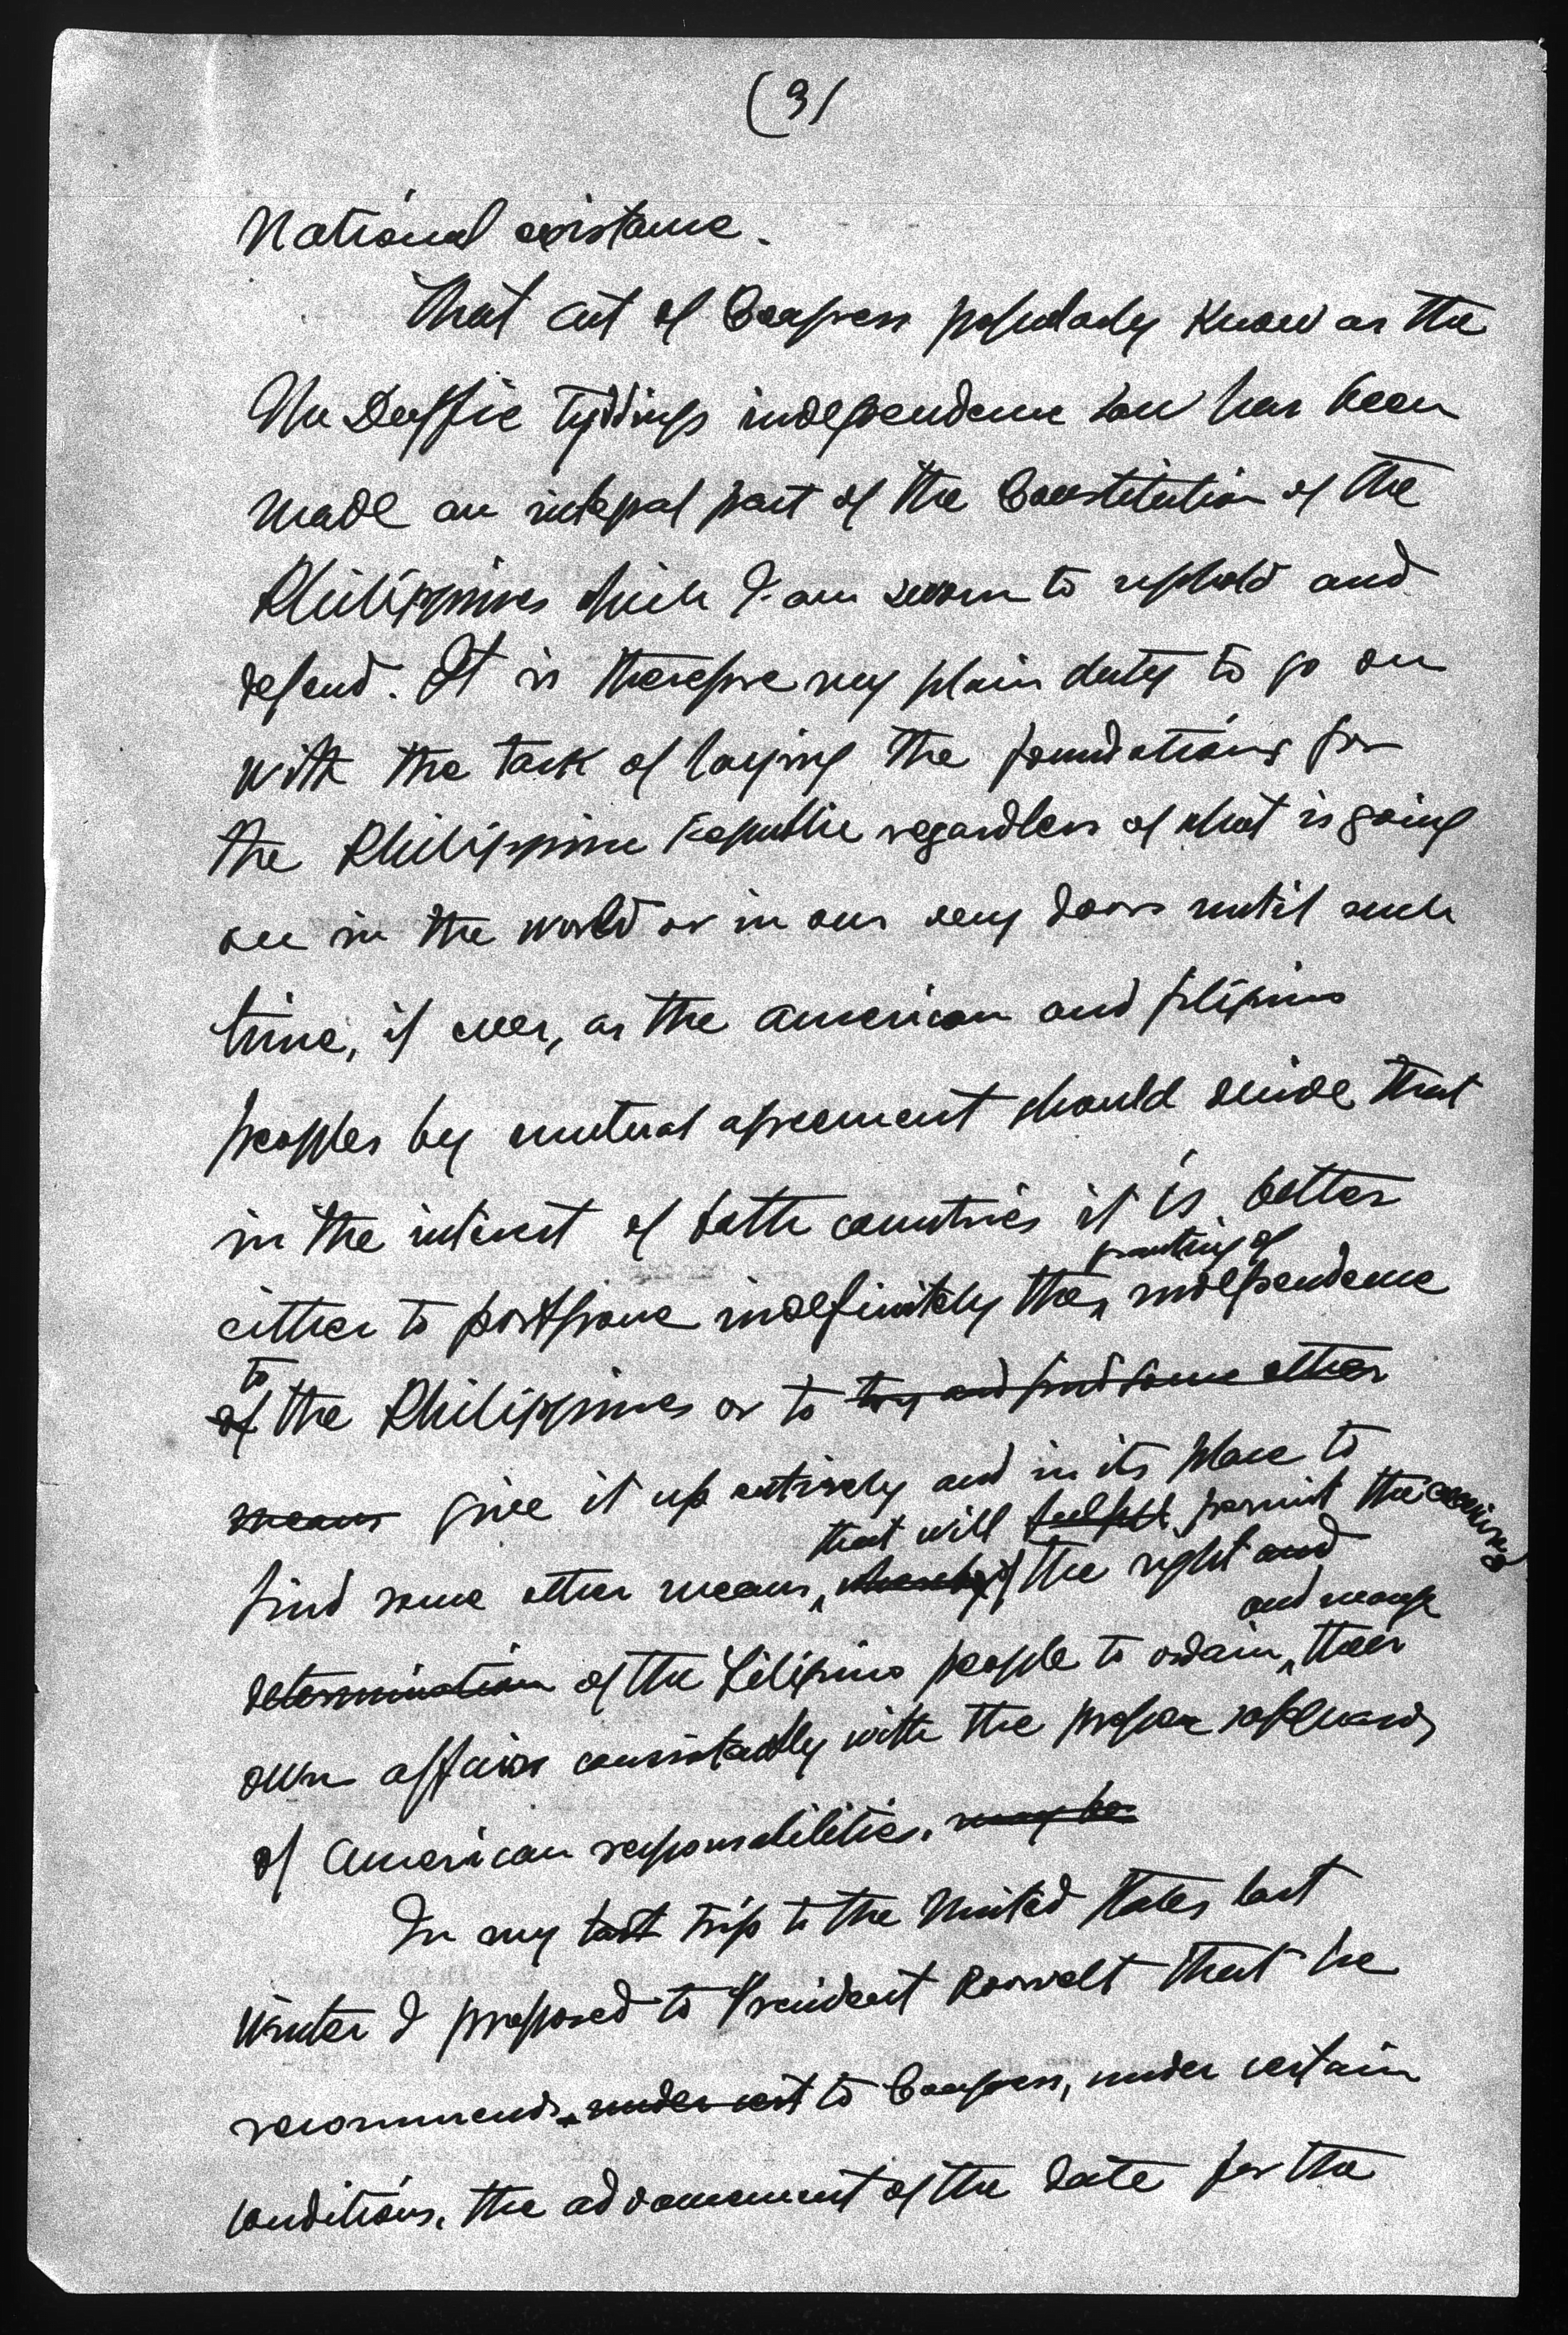 (3)
National existance.
That act of Congress popularly know as the
Mc Duffie Tyddings independence law has been
made an integral part of the Constitution of the
Philippines which I am sworn to uphold and
defend. It is therefore my plain duty to go on
with the task of laying the foundations for
the Philippine Republic regardless of what is going
on in the world or in our very doors until such
time, if ever, as the American and filipino
peoples by mutual agreement should decide that
in the interest of both countries it is better
granting of
either to postpone indefinitely the independence
to
of the Philippines or to try and find some other
means give it up entirely and in its place to
that will permit the exercise
find some other means, whereby of the right and
and manage
determination of the Filipino people to ordain their
own affairs consistantly with the proper safeguards
of American responsabilities. may be
In my last trip to the United States last
Winter I proposed to President Roosvelt that he
recommends under cert to Congress, under certain
conditions, the advancement of the date for the